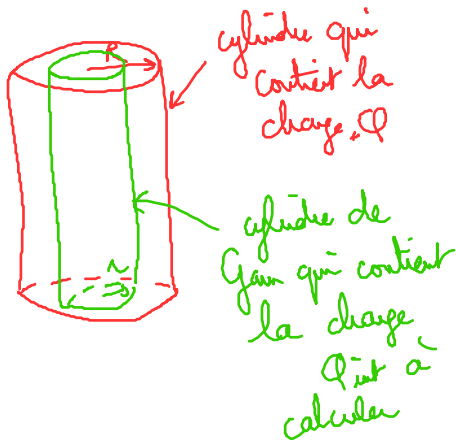 R
cylindre qui
contient la
charge Q
r
cylindre de
Gauss qui contient
la charge
Qint à
calculer